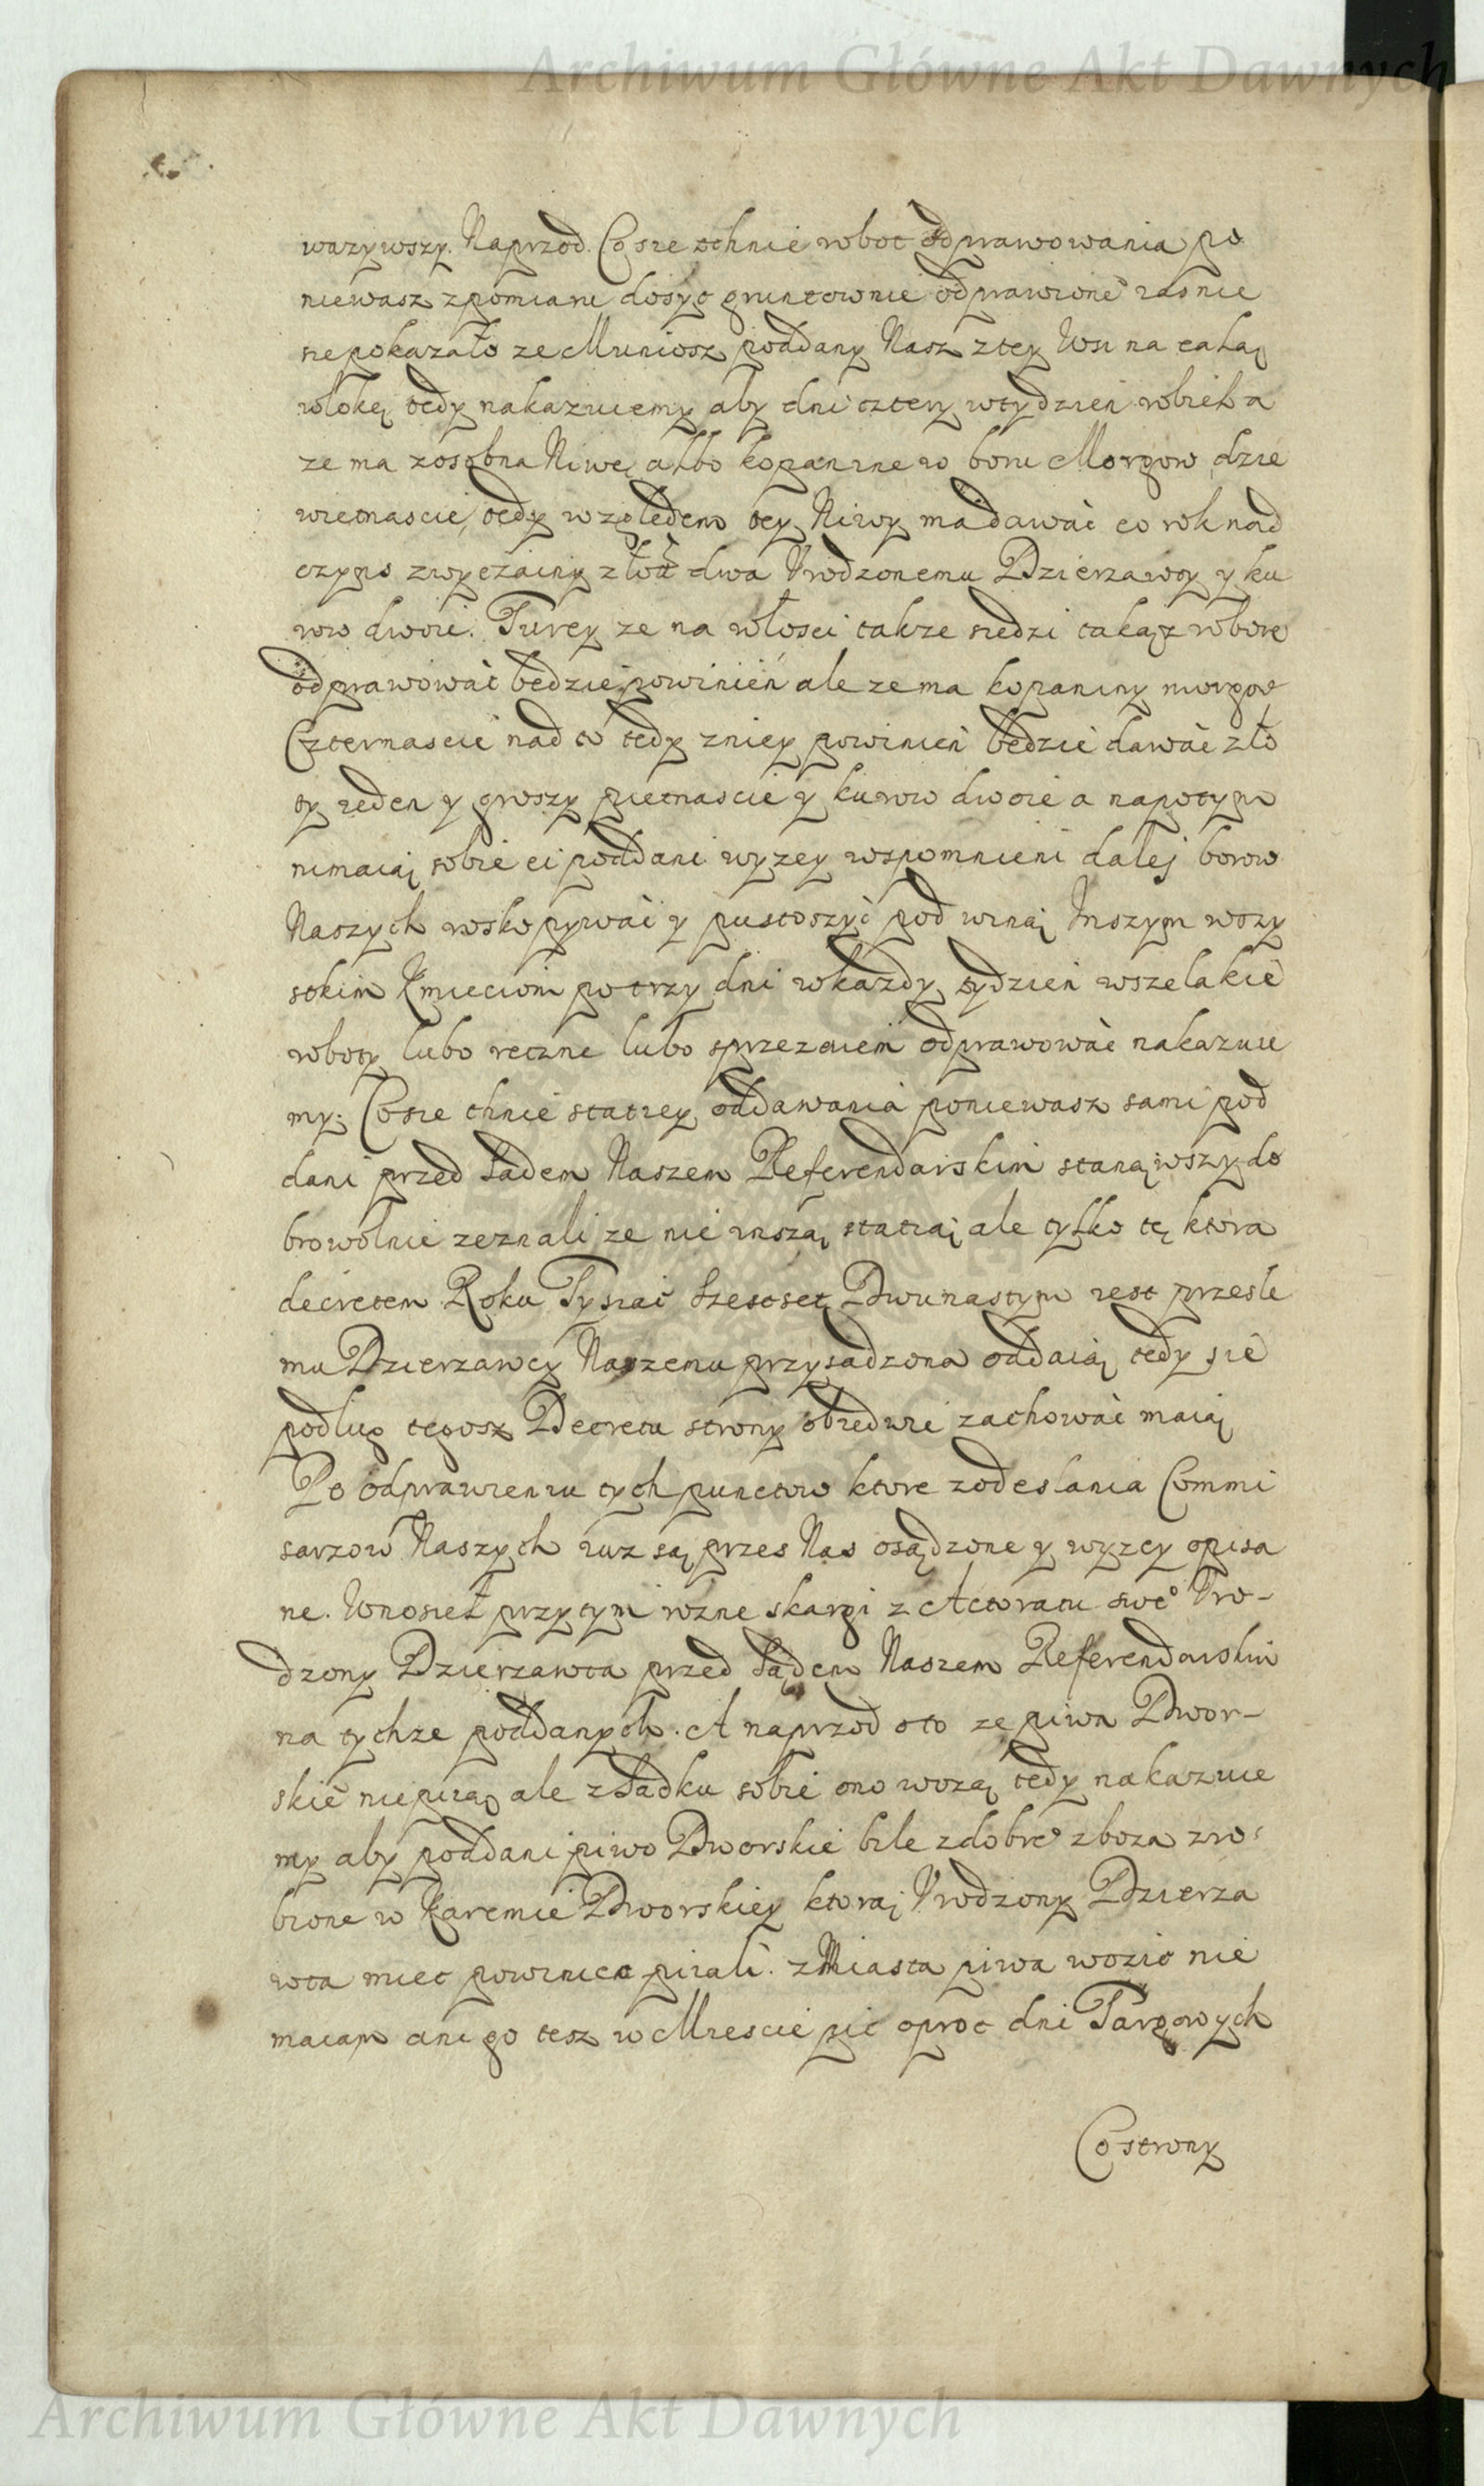 Archiwum Główne Akt Dawnych
wazywszy. Naprzod. Co sie tchnie robot odprawowania po
niewasz zpomiaru dosyc gruntownie odprawione iasnie
sie pokazało ze Muniosz poddany Nasz z tey Wsi na całaị
włokę tedy nakazuiemy aby dni cztery w tydzien robieł a
ze ma zosobna Niwę albo kopanine w boru Morgow dzie
wietnascie, tedy względem tey Niwy ma dawać co rok nad
czyns zwyczainy złot dwa Vrodzonemu Dzierzawcy y ku
row dwoie. Turcy ze na włosci takze siedzi takąz robote
odprawować będzie powinień ale ze ma kopaniny morgow
Czternascie nad to tedy z niey powinień będzie dawać zło
ty ieden y groszy pietnascie y kurow dwoie a napotym
nimaią sobie ci poddani wyzey wspomnieni dalej borow
Naszych roskopywać y pustoszyć pod winaị Inszym wszy
stkim Kmieciom po trzy dni w kazdy tydzień wszelakie
roboty lubo ręczne lubo sprzezaiem odprawować nakazuie
my. Co sie tchnie statiey oddawania poniewasz sami pod
dani przed Sadem Naszem Referendarskim stanąwszy do
browolnie zeznali ze nie inszą statią ale tylko tę ktora
decretem Roku Tysiac Szescset Dwunastym iest przesłe
mu Dzierzawcy Naszemu przysadzona oddaią tedy sie
podlug tegosz Decretu strony obiedwie zachować maią
Po odprawieniu tych punctow ktore zodeslania Commi
sarzow Naszych iuz są przes Nas osądzone y wyzey opisa
ne. Wnosieł przy tym rozne skargi z Actoratu swe° Vro-
dzony Dzierzawca przed Sądem Naszem Referendarskim
na tychze poddanych. A naprzod oto ze piwa Dwor-
skie° nie piią ale z Sadku sobie ono wozą tedy nakazuie
my aby poddani piwo Dworskie byle z dobre° zboza zro-
bione w Karcmie Dworskiey ktorą Vrodzony Dzierza
wca miec powinien piiali. z Miasta piwa wozic nie
maiam ani go tesz w Miescie pić oproc dni Targowych
Co strony
Archiwum Główne Akt Dawnych